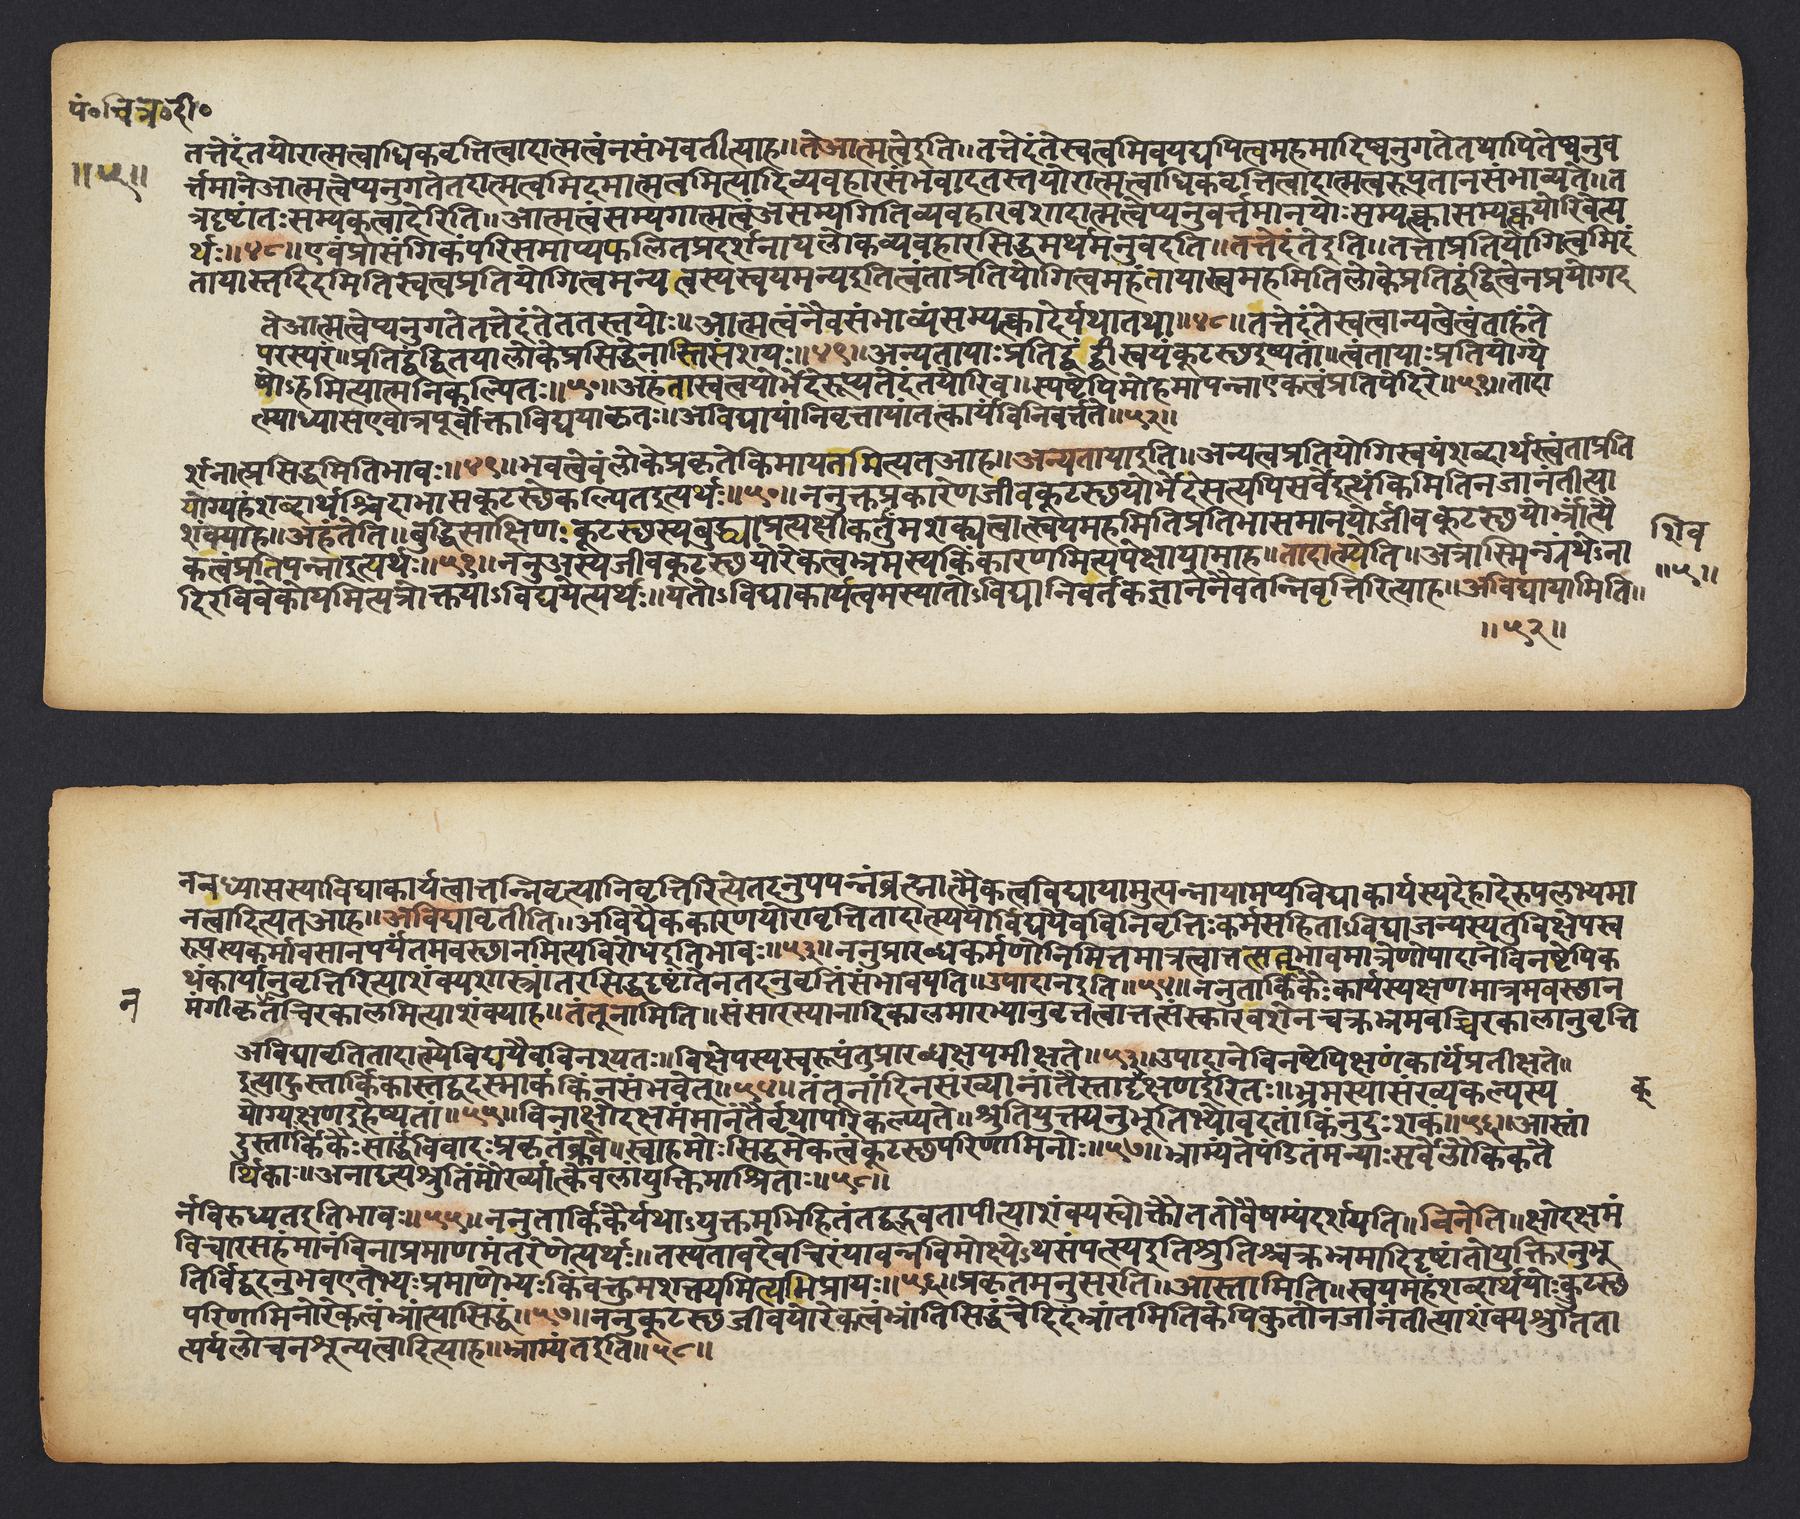 पं०चित्र०दी०
॥५१॥
तत्तेदंतयोरात्मत्वाधिकवृत्तित्वादात्मत्वंनसंभवतीत्याह॥तेआत्मत्वेइति॥तत्तेदंतेस्वत्वमिवयद्यपित्वमहमादिष्वनुगतेतथापितेष्वनुव
र्त्तमानेआत्मत्वेप्यनुगतेतदात्मत्वमिदमात्मत्वमित्यादिव्यवहारसंभवादतस्तयोरात्मत्वाधिकवृत्तित्वादात्मत्वरूपतानसंभाव्यते॥त
त्रदृष्टांतःसम्यक्त्वादेरिति॥आत्मत्वंसम्यगात्मत्वंअसम्यगितिव्यवहारवशादात्मत्वेप्यनुवर्त्तमानयोःसम्यक्त्वासम्यक्त्वयोरिवेत्य
र्थः॥४८॥एवंप्रासंगिकंपरिसमाप्यफलितप्रदर्शनायलोकव्यवहारसिद्धमर्थमनुवदति॥तत्तेदंतेइति॥तत्ताप्रतियोगित्वमिदं
तायास्तदिदमितिस्वत्वप्रतियोगित्वमन्यत्वस्यस्वयमन्यइतित्वंताप्रतियोगित्वमहंतायास्त्वमहमितिलोकेप्रतिद्वंद्वित्वेनप्रयोगद
तेआत्मत्वेप्यनुगतेतत्तेदंतेततस्तयोः॥आत्मत्वंनैवसंभाव्यंसम्यक्त्वादेर्यथातथा॥४८॥तत्तेदंतेस्वत्वान्यत्वेत्वंताहंते
परस्परं॥प्रतिद्वंद्वितयालोकेप्रसिद्धेनास्तिसंशयः॥४९॥अन्यतायाःप्रतिद्वंद्वीस्वयंकूटस्थइष्यतां॥त्वंतायाःप्रतियोग्ये
षोऽहमित्यात्मनिकल्पितः॥५०॥अहंतास्वत्वयोर्भेदेरूप्यतेदंतयोरिव॥स्पष्टेपिमोहमापन्नाएकत्वंप्रतिपेदिरे॥५१॥तादा
त्म्याध्यासएवात्रपूर्वोक्ताविद्ययाकृतः॥अविद्यायांनिवृत्तायांतत्कार्यंविनिवर्त्तते॥५२॥
र्शनात्प्रसिद्धमितिभावः॥४९॥भवत्वेवंलोकेप्रकृतेकिमायातमित्यतआह॥अन्यतायाइति॥अन्यत्वप्रतियोगिस्वयंशब्दार्थस्त्वंताप्रति
योग्यहंशब्दार्थश्चिदाभासकूटस्थेकल्पितइत्यर्थः॥५०॥ननूक्तप्रकारेणजीवकूटस्थयोर्भेदेसत्यपिसर्वेइत्थंकिमितिनजानंतीत्या
शंक्याह॥अहंतेति॥बुद्धिसाक्षिणःकूटस्थस्यबुद्ध्याप्रत्यक्षीकर्तुमशक्यत्वात्स्वयमहमितिप्रतिभासमानयोर्जीवकूटस्थयोर्भ्रांत्यै
कत्वंप्रतिपन्नाइत्यर्थः॥५१॥ननुअस्यजीवकूटस्थयोरेकत्वभ्रमस्यकिंकारणमित्यपेक्षायामाह॥तादात्म्येति॥अत्रास्मिन्ग्रंथेऽना
दिरविवेकोयमित्यत्रोक्तयाऽविद्ययेत्यर्थः॥यतोऽविद्याकार्यत्वमस्यातोऽविद्यानिवर्तकज्ञानेनैवतन्निवृत्तिरित्याह॥अविद्यायामिति॥
॥५२॥
शिव
॥५१॥
नन्वध्यासस्याविद्याकार्यत्वात्तन्निवृत्त्यानिवृत्तिरित्येतदनुपपन्नंब्रह्मात्मैकत्वविद्यायामुत्पन्नायामप्यविद्याकार्यस्यदेहादेरुपलभ्यमा
नत्वादित्यतआह॥अविद्यावृतीति॥अविद्यैककारणयोरावृत्तितादात्म्ययोर्विद्ययैवविनिवृत्तिःकर्मसहिताऽविद्याजन्यस्यतुविक्षेपस्व
रूपस्यकर्मावसानपर्यंतमवस्थानमित्यविरोधइतिभावः॥५३॥ननुप्रारब्धकर्मणोनिमित्तमात्रत्वात्तत्सद्भावमात्रेणोपादानेविनष्टेपिक
थंकार्यानुवृत्तिरित्याशंक्यशास्त्रांतरसिद्धदृष्टांतेनतदनुवृत्तिंसंभावयति॥उपादानइति॥५४॥ननुतार्किकैःकार्यस्यक्षणमात्रमवस्थान
न
मंगीकृतंचिरकालमित्याशंक्याह॥तंतूनामिति॥संसारस्यानादिकालमारभ्यानुवृत्तत्वात्तत्संस्कारवशेनचक्रभ्रमवच्चिरकालानुवृत्ति
अविद्यावृतितादात्म्येविद्ययैवविनश्यतः॥विक्षेपस्यस्वरूपंतुप्रारब्धक्षयमीक्षते॥५३॥उपादानेविनष्टेपिक्षणंकार्यंप्रतीक्षते॥
इत्याहुस्तार्किकास्तद्वदस्माकंकिंनसंभवेत्॥५४॥तंतूनांदिनसंख्यानांतैस्तादृक्क्षणईरितः॥भ्रमस्यासंख्यकल्पस्य
योग्यःक्षणइहेष्यतां॥५५॥विनाक्षोदक्षमंमानंतैर्वृथापरिकल्प्यते॥श्रुतियुक्त्यनुभूतिभ्योवदतांकिंनुदुःशक॥५६॥आस्तां
क
दुस्तार्किकैःसार्द्धंविवादःप्रकृतंब्रुवे॥स्वाहमोःसिद्धमेकत्वंकूटस्थपरिणामिनोः॥५७॥भ्राम्यंतेपंडितंमन्याःसर्वेलौकिकतै
र्थिकाः॥अनादृत्यश्रुतिंमौर्ख्यात्केवलांयुक्तिमाश्रिताः॥५८॥
र्नविरुध्यतइतिभावः॥५५॥ननुतार्किकैर्यथाऽयुक्तमभिहितंतद्वद्भवतापीत्याशंक्यस्वोक्तौततोवैषम्यंदर्शयति॥विनेति॥क्षोदक्षमं
विचारसहंमानंविनाप्रमाणमंतरेणेत्यर्थः॥तस्यतावदेवचिरंयावन्नविमोक्ष्येऽथसंपत्स्यइतिश्रुतिश्चक्रभ्रमादिदृष्टांतोयुक्तिरनुभू
तिर्विद्वदनुभवएतेभ्यःप्रमाणेभ्यःकिंवक्तुमशक्यमित्यभिप्रायः॥५६॥प्रकृतमनुसरति॥आस्तामिति॥स्वयमहंशब्दार्थयोःकूटस्थ
परिणामिनोरेकत्वंभ्रांत्यासिद्धं॥५७॥ननुकूटस्थजीवयोरेकत्वंभ्रांतिसिद्धंचेदिदंभ्रांतमितिकेपिकुतोनजानंतीत्याशंक्यश्रुतिता
त्पर्यलोचनशून्यत्वादित्याह॥भ्राम्यंतइति॥५८॥